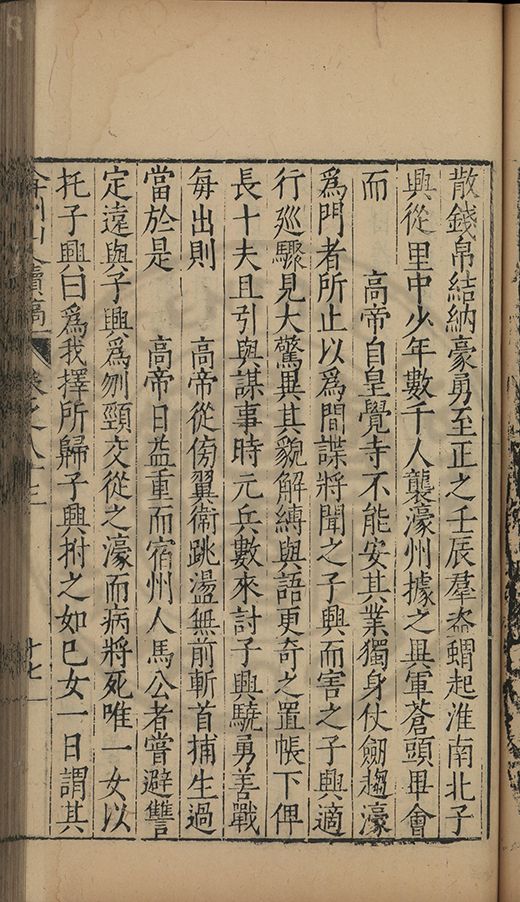 散錢帛結納豪勇至正之壬辰羣盗蝟起淮南北子
興從里中少年數千人襲濠州據之異軍蒼頭畢會
而　高帝自皇覺寺不能安其業獨身仗劒趨濠
爲門者所止以爲間諜將聞之子興而害之子興適
行廵驟見大驚異其貌解縛與語更奇之置帳下俾
長十夫且引與謀事時元兵數來討子興驍勇善戰
每出則　高帝從傍翼衞跳盪無前斬首捕生過
當於是　高帝日益重而宿州人馬公者嘗避讐
定遠與子興爲刎頸交從之濠而病將死唯一女以
托子興曰爲我擇所歸子興拊之如巳女一日謂其
續稿 卷之八十三
十七